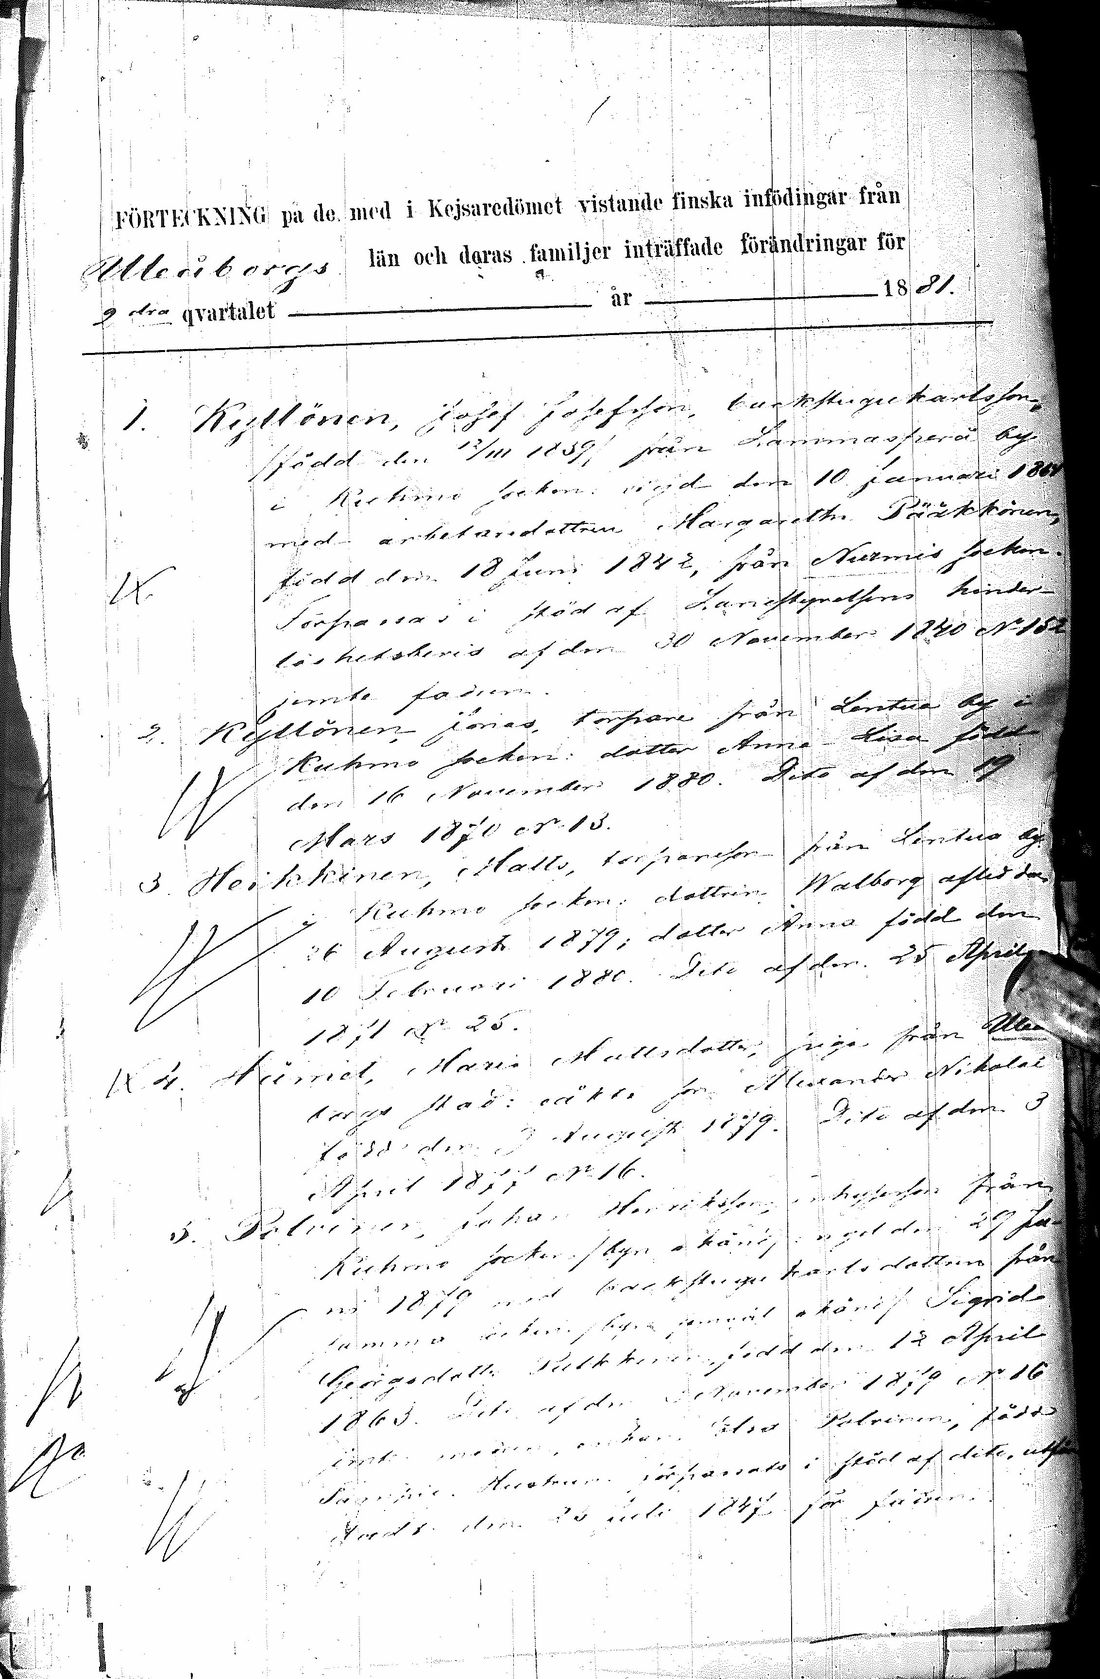 FÖRTECKNING på de med i Kejsaredömet vistande finska infödingar från
Uleåborgs län och deras familjer inträffade förändringar för
2dra qvartalet år 1881.
1. Kyllönen, Josef Josefsson, backstugukarlsson,
/född den 12/III 1839/ från Lammasperä by
i Kuhmo socken: vigd den 10 Januari 1864
med arbetaredottren Margaretha Pääkkönen,
född den 18 Juni 1842, från Nurmis socken.
Förpassas i stöd af Landtstyrelsens hinder-
löshetsbevis af den 30 November 1840 No 152
jemte fadren.
2. Kyllönen, Jonas, torpare från Lentua by i
Kuhmo socken: dotter Anna Lisa född
den 16 November 1880. Dito af den 19
Mars 1870 No 13.
3. Heikkinen, Matts, torpareson från Lentua by
i Kuhmo socken: dottren Walborg afled den
26 Augusti 1879; dotter Anna född den
10 Februari 1880. Dito af den 25 April
1871 No 25.
4. Maria Mattsdotter, piga från Uleå-
borgs stad: oäkta son Alexander Nikolai
född den Augusti 1879. Dito af den 3
April 1877 No 16.
5. Polvinen, Johan Henriksson, inhysesson från
Kuhmo socken /byn okänd/: vigd den 29 Ju-
ni 1879 med backstugukarlsdottren från
samma socken /byn jemväl okänd/ Sigrid
Georgsdotter född den 12 April
1863. Dito af den November 1879 No 16
jemte modren, enkan Polvinen, född
Hustrun förpassats i stöd af dito,
den 25 Juli 1847 för fadren.